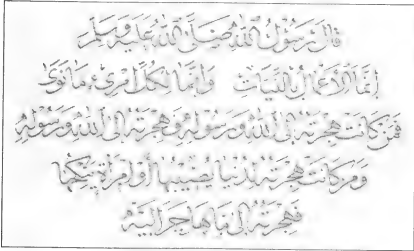 قَالَ رَسُولُ اللهِ صَلَّى اللهُ عَلَيْهِ وَسَلَّمَ
إِنَّمَا الْأَعْمَالُ بِالنِّيَّاتِ وَإِنَّمَا لِكُلِّ امْرِئٍ مَا نَوَى
فَمَنْ كَانَتْ هِجْرَتُهُ إِلَى اللهِ وَرَسُولِهِ فَهِجْرَتُهُ إِلَى اللهِ وَرَسُولِهِ
وَمَنْ كَانَتْ هِجْرَتُهُ لِدُنْيَا يُصِيبُهَا أَوِ امْرَأَةٍ يَنْكِحُهَا
فَهِجْرَتُهُ إِلَى مَا هَاجَرَ إِلَيْهِ